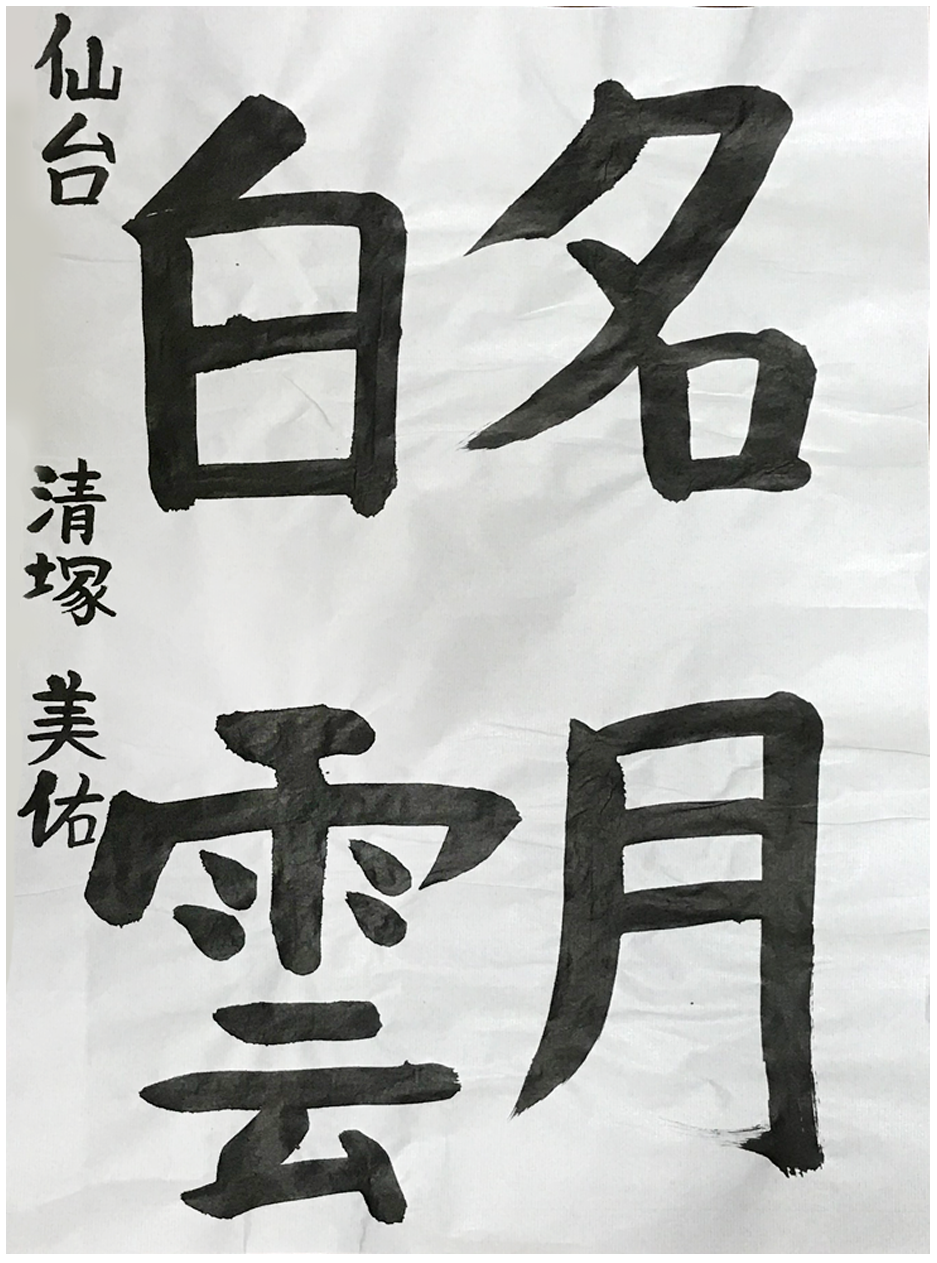 名月
白雲
仙台 清塚 美佑